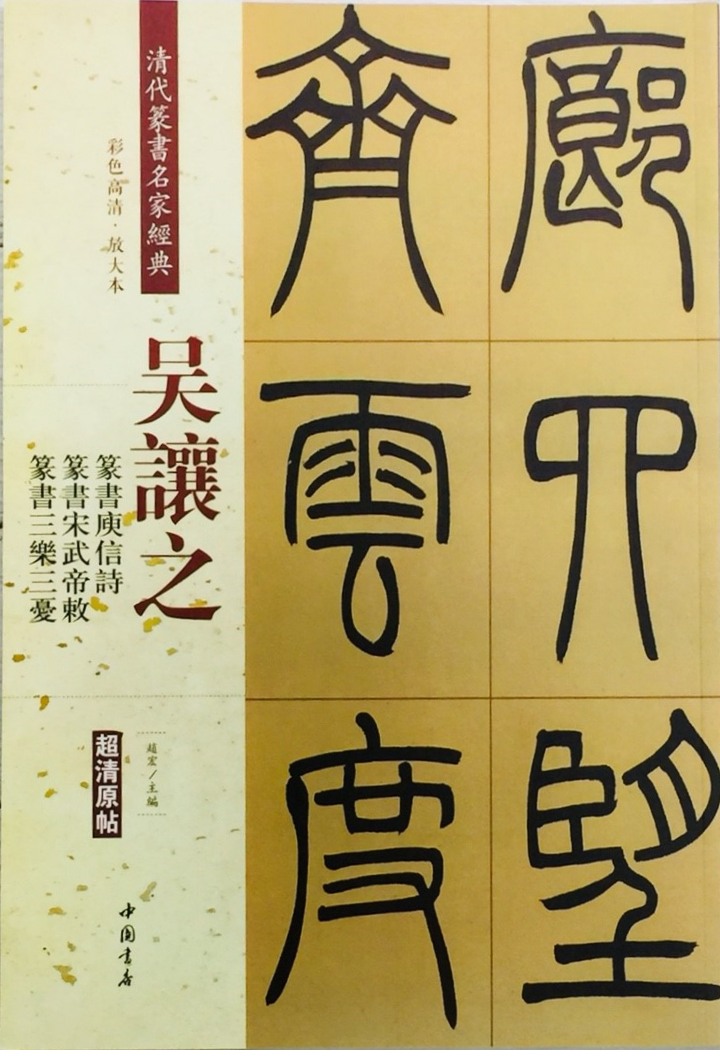 廊四望
齊雲度
清代篆書名家經典
彩色高清·放大本
吴讓之
篆書庾信詩
篆書宋武帝敕
篆書三樂三憂
趙宏/主編
超清原帖
中國書店